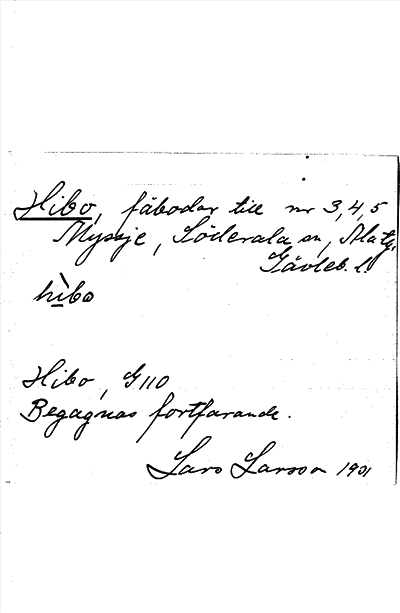 Hibo, fäbodar till nr 3, 4, 5
Myssje, Söderala sn,
Gävleb. l.
hìbo
Hibo, G110
Begagnas fortfarande.
Lars Larsson 1931